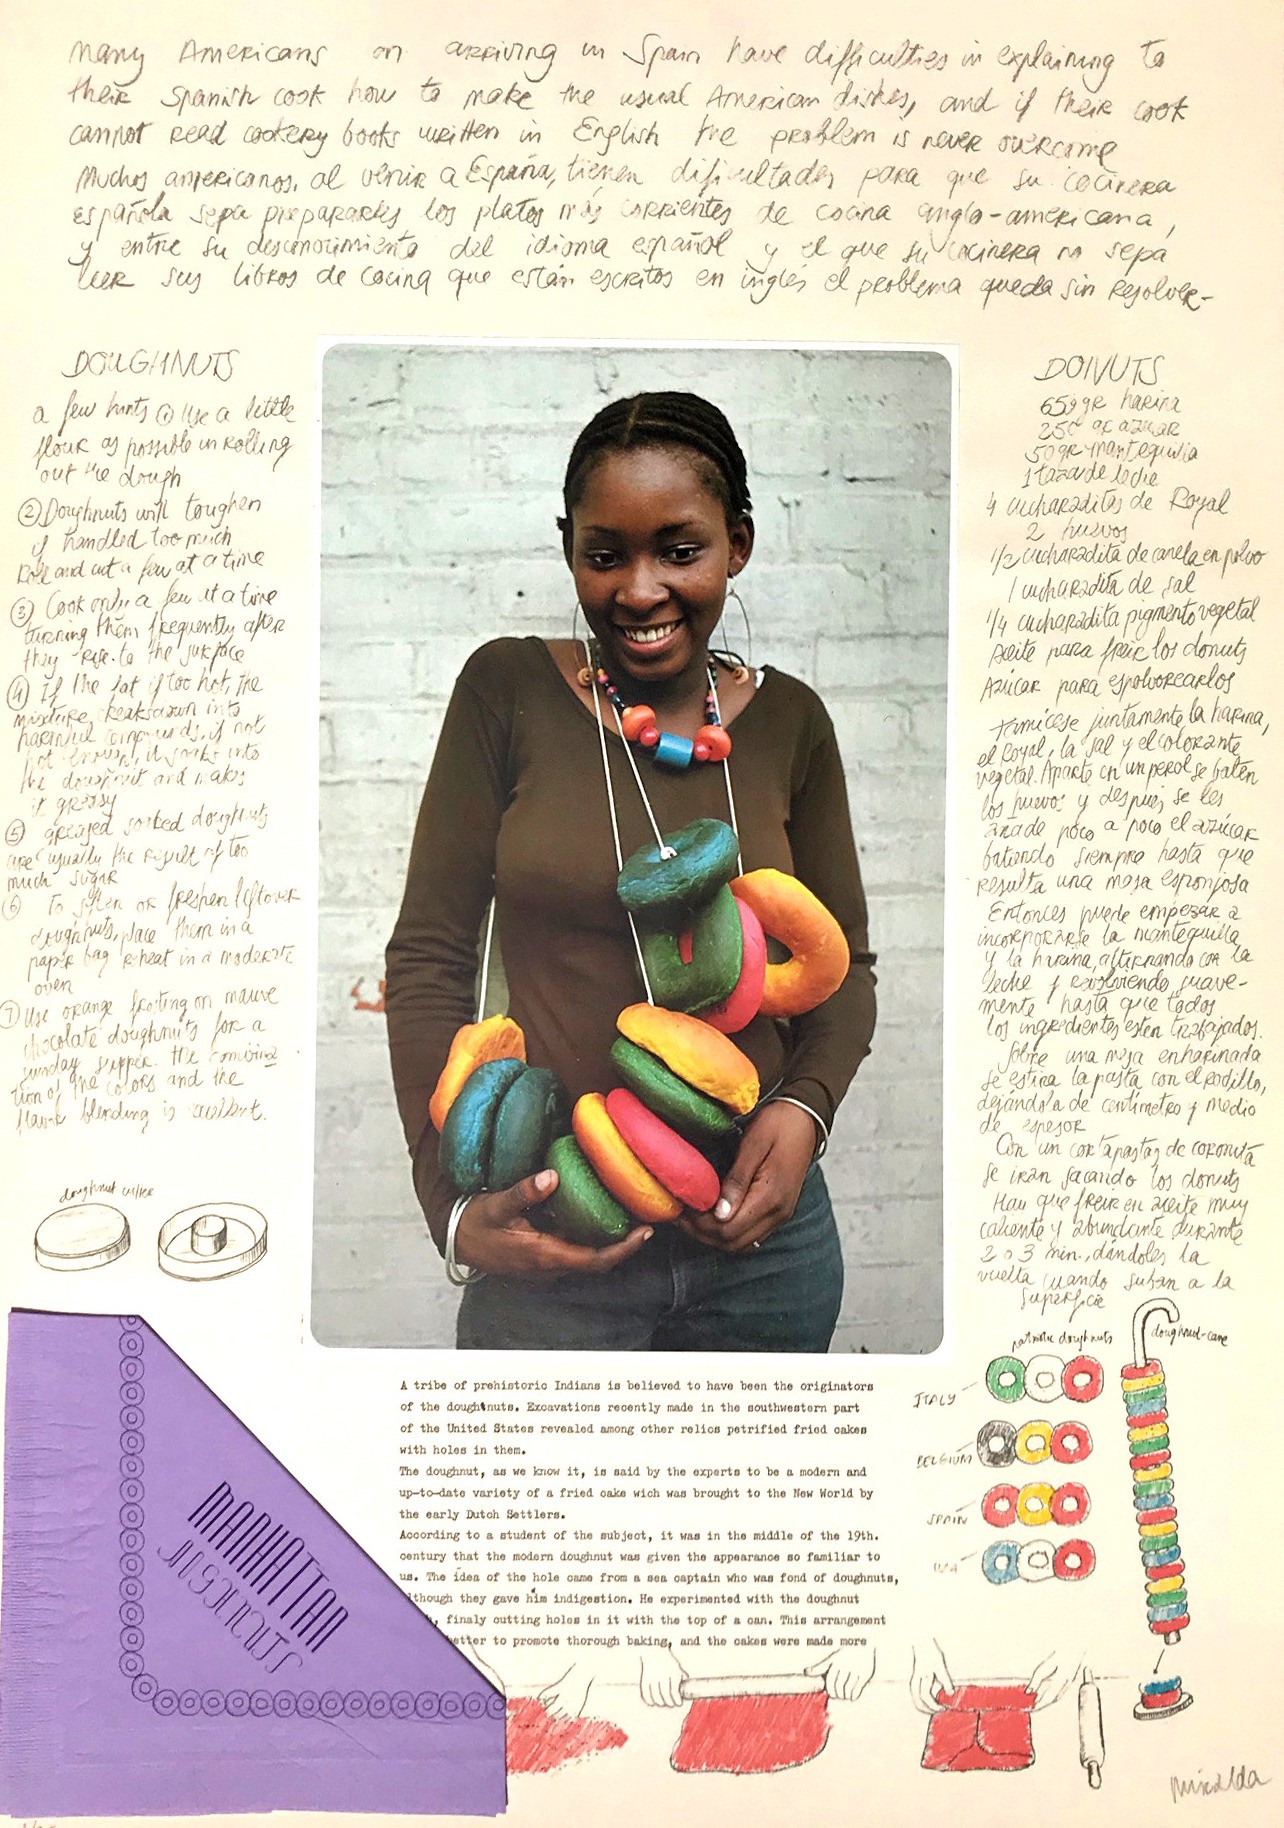 many Americans on arriving in Spain have difficulties in explaining to
their Spanish cook how to make the usual American dishes, and if their cook
cannot read cookery books written in English the problem is never overcome
Muchos americanos, al venir a España, tienen dificultades para que su cocinera
española sepa prepararles los platos más corrientes de cocina anglo-americana,
y entre su desconocimiento del idioma español y el que su cocinera no sepa
leer sus libros de cocina que están escritos en inglés el problema queda sin resolver-
DOUGHNUTS
a few hints ① Use a little
flour as possible in rolling
out the dough
② Doughnuts will toughen
if handled too much
Roll and cut a few at a time
③ Cook only a few at a time
turning them frequently after
they rise to the surface
④ If the fat if too hot, the
mixture breaksdown into
harmful compounds, if not
hot enough, it soaks into
the doughnut and makes
it greasy
⑤ greased soaked doughnuts
are usually the result of too
much sugar
⑥ To soften or freshen leftover
doughnuts, place them in a
paper bag reheat in a moderate
oven
⑦ Use orange frosting on mauve
chocolate doughnuts for a
sunday supper. the combina
tion of the colors and the
flavor blending is excellent.
doughnut cutter
DONUTS
650 gr harina
250 gr azucar
50 gr mantequilla
1 taza de leche
4 cucharaditas de Royal
2 huevos
1/2 cucharadita de canela en polvo
1 cucharadita de sal
1/4 cucharadita pigmento vegetal
Aceite para freir los donuts
Azucar para espolvorearlos
Tamicese juntamente la harina,
el Royal, la sal y el colorante
vegetal. Aparte en un perol se baten
los huevos y despues se les
añade poco a poco el azúcar
batiendo siempre hasta que
resulta una masa esponjosa
Entonces puede empezar a
incorporarse la mantequilla
y la harina, alternando con la
leche y revolviendo suave-
mente hasta que todos
los ingredientes esten trabajados.
Sobre una mesa enharinada
se estira la pasta con el rodillo,
dejandola de centimetro y medio
de espesor
Con un cortapastas de coronita
se iran sacando los donuts
Hay que freir en aceite muy
caliente y abundante durante
2 o 3 min., dándoles la
vuelta cuando suban a la
superficie
patriotic doughnuts
doughnut-cane
ITALY
BELGIUM
SPAIN
USA
A tribe of prehistoric Indians is believed to have been the originators
of the doughtnuts. Excavations recently made in the southwestern part
of the United States revealed among other relics petrified fried cakes
with holes in them.
The doughnut, as we know it, is said by the experts to be a modern and
up-to-date variety of a fried cake wich was brought to the New World by
the early Dutch Settlers.
According to a student of the subject, it was in the middle of the 19th.
century that the modern doughnut was given the appearance so familiar to
us. The idea of the hole came from a sea captain who was fond of doughnuts,
lthough they gave him indigestion. He experimented with the doughnut
, finaly cutting holes in it with the top of a can. This arrangement
etter to promote thorough baking, and the cakes were made more
MANHATTAN
DOUGHNUTS
Miralda